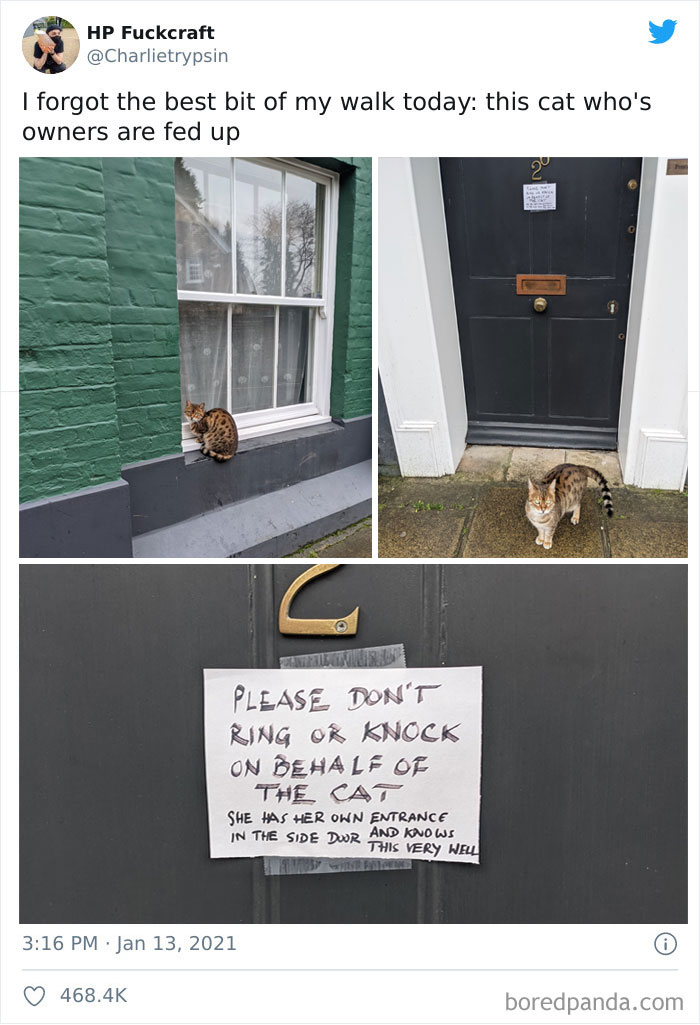 HP Fuckcraft
@Charlietrypsin
I forgot the best bit of my walk today: this cat who's
owners are fed up
2
PLEASE DON'T
RING OR KNOCK
ON BEHALF OF
THE CAT
2
PLEASE DON'T
RING OR KNOCK
ON BEHALF OF
THE CAT
SHE HAS HER OWN ENTRANCE
IN THE SIDE DOOR AND KNOWS
THIS VERY WELL
3:16 PM · Jan 13, 2021
468.4K
boredpanda.com